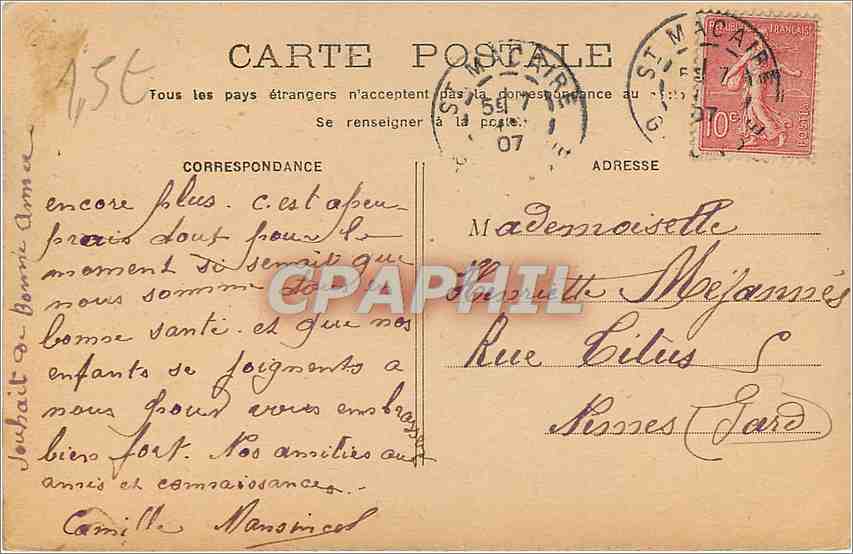 CARTE POSTALE
Tous les pays étrangers n'acceptent pas la correspondance au
Se renseigner à la poste
1,5€
ST MACAIRE
7
07
ST MACAIRE
7
07
REPUBLIQUE FRANÇAISE
10c
POSTES
CORRESPONDANCE
encore plus. c. est apeu
prais tout pour le
moment si senait que
nous somme tous en
bonne santé. et que nos
enfants se joignents a
nous pour vous embrasser
bien fort. Nos amitiés aux
amis et connaissances.
Camille
Souhait de Bonne Année
ADRESSE
Mademoiselle
Henriette Méjannès
Rue Titus 5
Nimes (Gard)
CPAPHIL